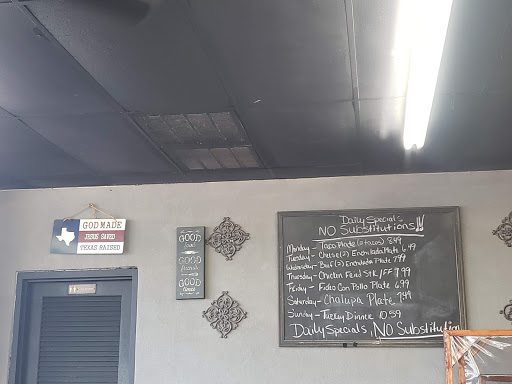 GOD MADE
JESUS SAVED
TEXAS RAISED
GOOD
food
GOOD
friends
GOOD
times
Daily Specials
NO Substitutions!!!
Monday - Taco Plate (2 tacos) 8.49
Tuesday - Cheese (2) Enchilada Plate 6.49
Wednesday - Beef (2) Enchilada Plate 7.99
Thursday - Chicken Fried Stk / FF 7.99
Friday - Fideo Con Pollo Plate 6.99
Saturday - Chalupa Plate 7.49
Sunday - Turkey Dinner 10.59
Daily Specials, NO Substitution